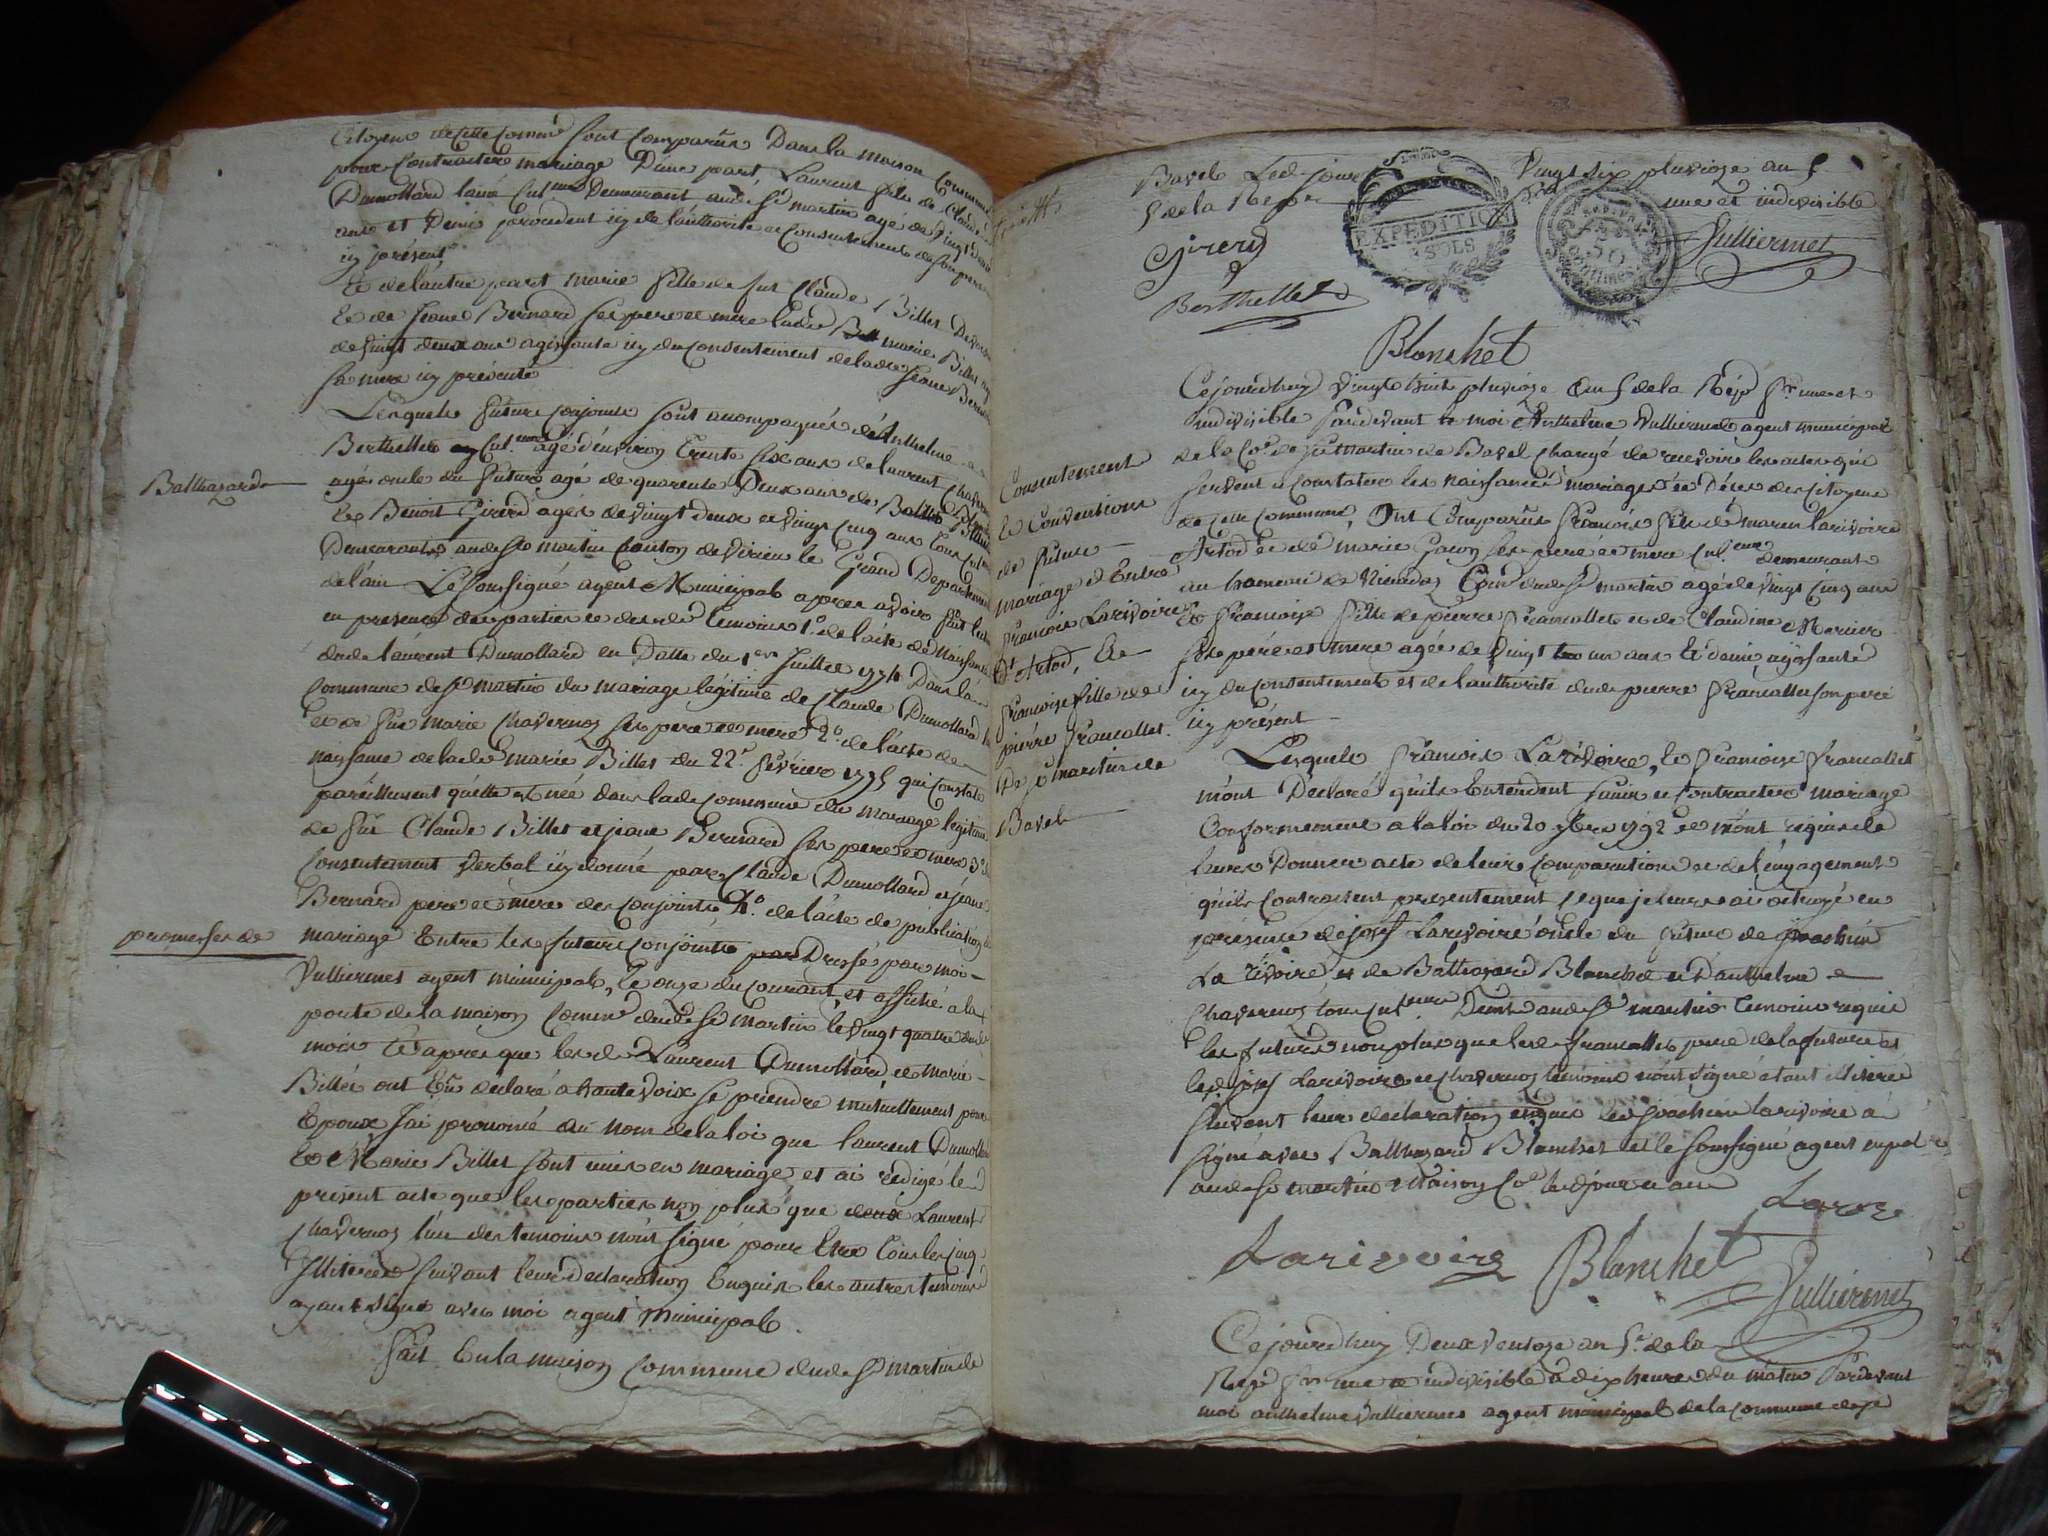 Citoyens de cette Comm.ne sont comparus Dans la maison Commune
pour Contracter mariage D'une part, Laurent fils de Claude
Dumollard laisné Cul.eur Demeurant aud. St martin agé de Vingt Deux
ans et Demi procedent icy de l'authorité et Consentement de son pere
icy présent
Et de l'autre part marie fille de fut Claude Billet
Et de Jeane Bernard ses pere et mere lade marie Billet agée
de vingt deux ans agissante icy du consentement de lade Jeane Bernard
sa mere icy présente
Lesquels futurs conjoints sont acompagnés d'Anthelme
Berthellet Cul.eur agé d'environ Trente six ans de laurent Chavernoz
agé oncle du futur agé de quarente Deux ans de Balthazard Blanchet
Et Benoit Girerd agés de vingt deux et vingt cinq ans tous Cul.
Demeurants aud. St martin Canton de Virieu le Grand Departement
de l'ain Le Soussigné agent Municipal apres avoir fait lecture
en presence des parties et desd. temoins 1.° de l'acte de Naissance
dud. laurent Dumollard en Datte du 1.er Juillet 1774 Dans la
Commune de St martin du mariage légitime de Claude Dumollard
et de fue marie Chavernoz ses pere et mere 2.° de l'acte de
naissance de lade marie Billet du 22.e février 1775 qui constate
pareillement qu'elle est née dans lade Commune du mariage legitime
de fut Claude Billet et jeane Bernard ses pere et mere 3.°
Consentement Verbal icy donné par Claude Dumollard et jeane
Bernard pere et mere des conjoints 4.° de l'acte de publication de
Balthazard
promesses de
mariage Entre les futurs conjoints Dressé par moi
Vulliermet agent municipal, le onze du courant, et affiché a la
porte de la maison Comm.e dud. St martin le vingt quatre dud.
mois et apres que lesd. Laurent Dumollard et Marie
Billet ont Eu declaré a haute Voix se prendre mutuellement pour
Epoux J'ai prononcé au nom de la loi que laurent Dumollard
Et Marie Billet sont unis en mariage et ai redigé le
présent acte que les parties non plus que Laurent
Chavernoz l'un des temoins n'ont signé pour Etre tous les cinq
Illiterés suivant leur declaration Enquis les autres temoins
ayant signé avec moi agent Municipal.
Fait En la maison Commune dud. St martin de
Bavel Led. jour Vingt six pluvioze an 5
5 de la Rép. une et indivisible
EXPEDITION
SOLS
Girerd
Vulliermet
Berthellet
Blanchet
Consentement
Et Conventions
de futur
mariage Entre
francois Larivoire
D'Artod, Et
françoise fille de
pierre francallet
De St martin de
Bavel
Cejourdhuy vingt huit pluvioze an 5 de la Rép. fr. une et
indivisible Pardevant moi Anthelme Vulliermet agent municipal
de la Co.ne de St Martin de Bavel chargé de recevoir les actes qui
servent a constater les naissances mariages et Déces des citoyens
de cette commune, Ont Comparus francois fils de marin larivoire
Artod et de marie Gacon ses pere et mere cul.eurs demeurants
au hameau de Co.ne dud. St martin agé de vingt cinq ans
Et francoise fille de pierre francallet et de Claudine Mercier
ses pere et mere agée de vingt un ans Et demi agissante
icy du consentement et de l'authorité dud. pierre francallet son pere
icy présent
Lesquels francois Larivoire, Et francoise francallet
m'ont Declaré qu'ils Entendent s'unir et contracter mariage
Conformement a la loi du 20 7bre 1792 et m'ont requis de
leurs Donner acte de leur comparution et de l'engagement
qu'ils contractent presentement ce que je leurs ai octroyé en
présence de josef Larivoire oncle du futur de joachim
La rivoire et de Balthazard Blanchet et d'anthelme
Chavernoz tous cul.eurs Dem.ts aud. St martin temoins requis
les futurs non plus que led. francallet pere de la future et
led. josef Larivoire et Chavernoz temoins n'ont signé étant illiterés
suivant leur declaration enquis led. joachim larivoire a
signé avec Balthazard Blanchet et le soussigné agent mpal
aud. St martin Maison Co.ne led. jour et an
Larivoire Blanchet
Vulliermet
Cejourdhuy Deux ventoze an 5.e de la
Rép. fr. une et indivisible a dix heures du matin Pardevant
moi anthelme Vulliermet agent municipal de la Commune de St